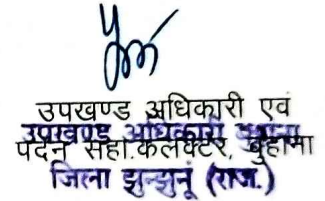 उपखण्ड अधिकारी एवं
उपखण्ड अधिकारी
पदेन सहा.कलेक्टर, बुहाना
जिला झुन्झुनूं (राज.)